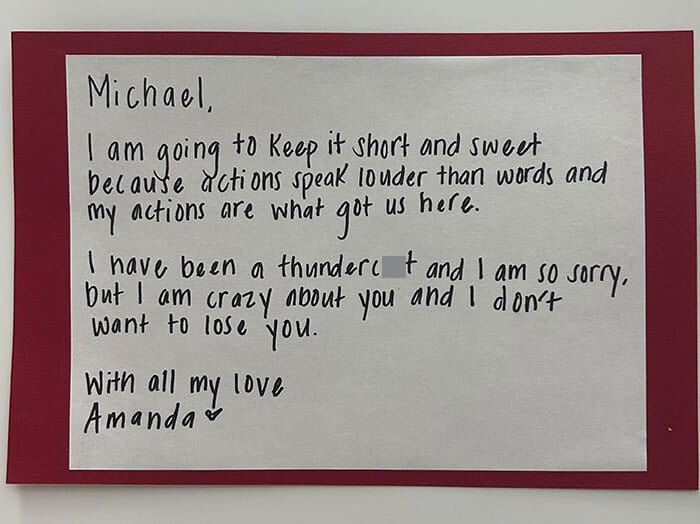 Michael,
I am going to keep it short and sweet
because actions speak louder than words and
my actions are what got us here.
I have been a thunderc t and I am so sorry,
but I am crazy about you and I don't
want to lose you.
With all my love
Amanda